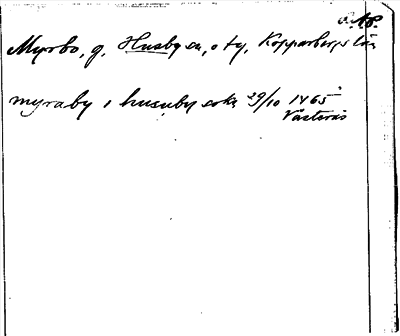 Myrbo, g. Husby sn, o ty, Kopparbergs län
myraby i husuby sokn 29/10 1465
Västerås